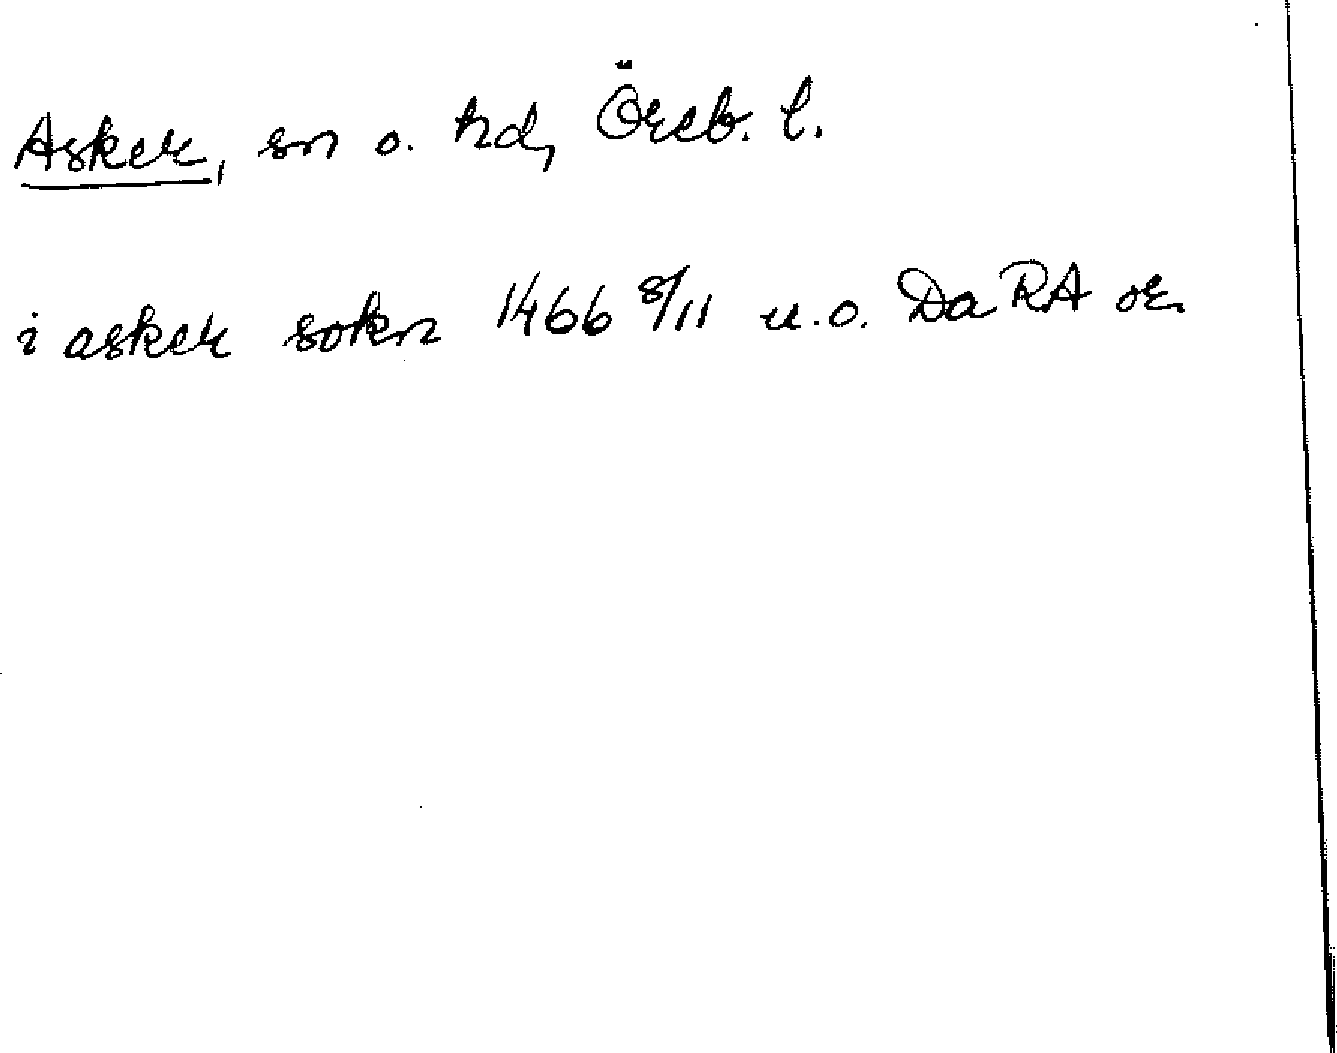 Asker, sn o. hd, Öreb. l.
i asker sokn 1466 8/11 u.o. Da RA or.